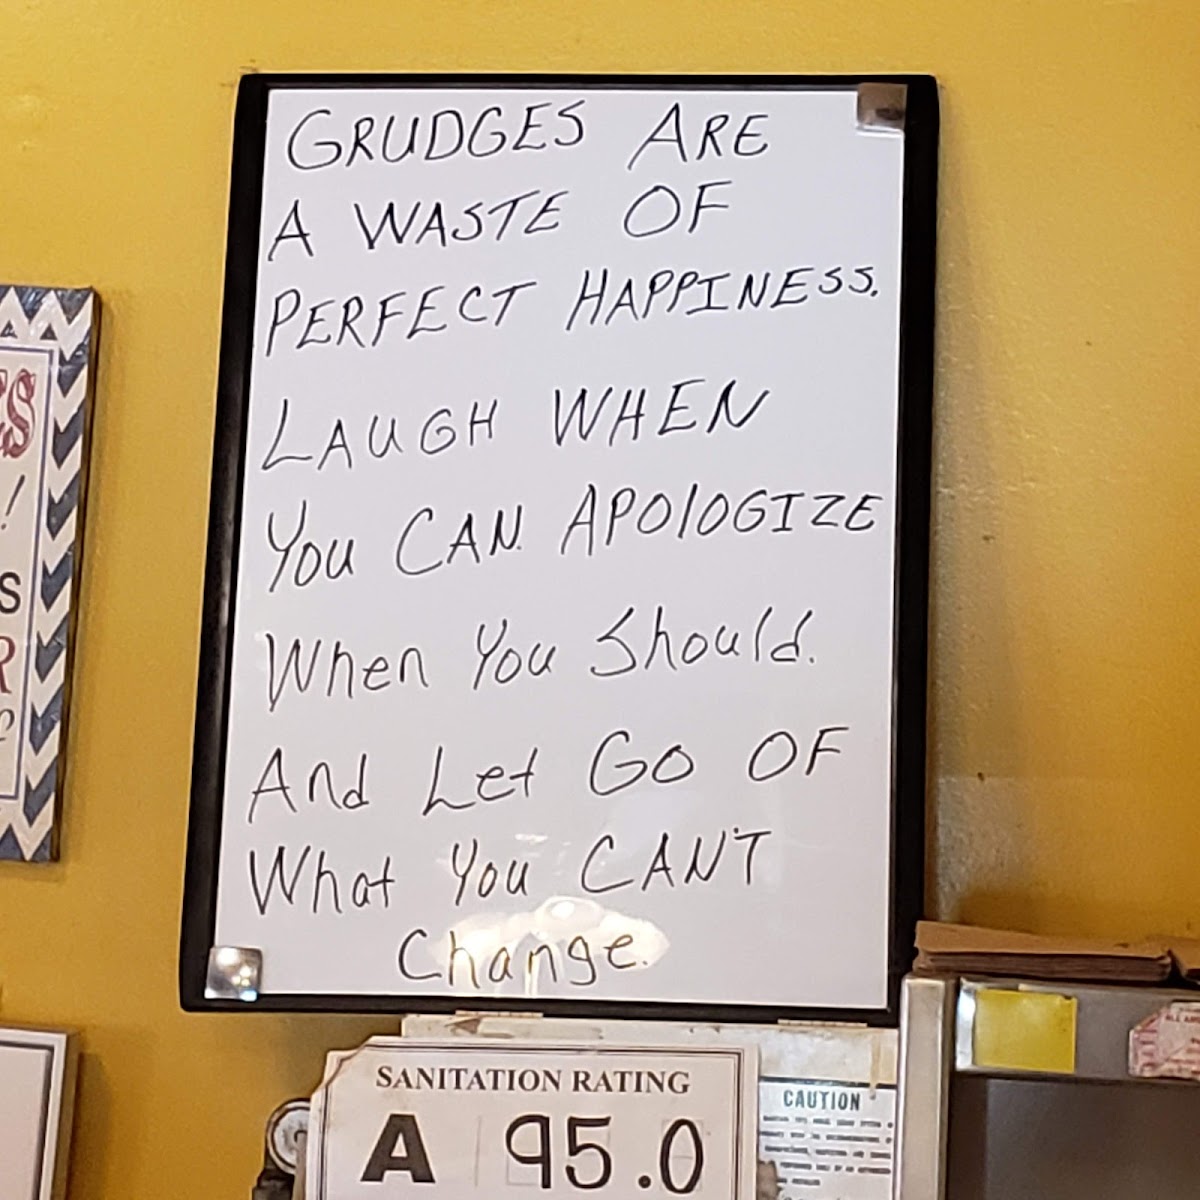 GRUDGES ARE
A WASTE OF
PERFECT HAPPINESS.
LAUGH WHEN
YOU CAN. APOlOGIZE
When You Should.
And Let GO OF
What You CAN'T
Change.
S
!
S
R
SANITATION RATING
A 95.0
CAUTION